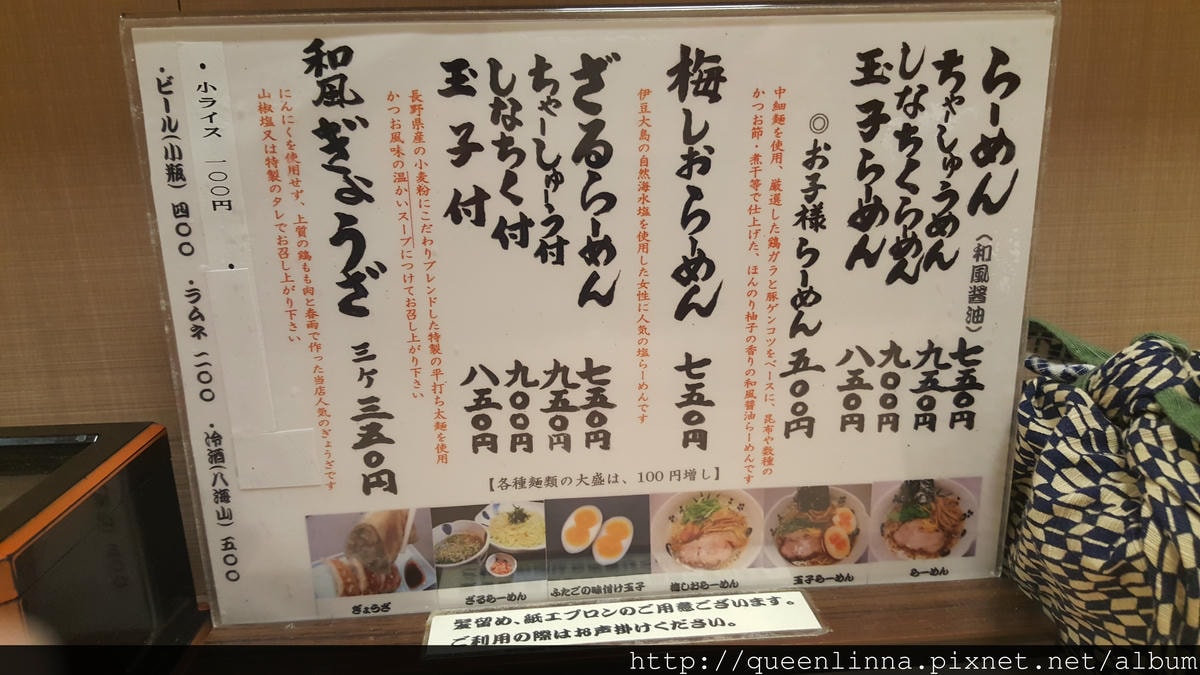 らーめん(和風醤油) 七五〇円
ちゃーしゅうめん 九五〇円
しなちくらーめん 九〇〇円
玉子らーめん 八五〇円
◎お子様らーめん 五〇〇円
中細麺を使用、厳選した鶏ガラと豚ゲンコツをベースに、昆布や数種の
かつお節・煮干等で仕上げた、ほんのり柚子の香りの和風醤油らーめんです
梅しおらーめん 七五〇円
伊豆大島の自然海水塩を使用した女性に人気の塩らーめんです
ざるらーめん 七五〇円
ちゃーしゅーう付 九五〇円
しなちく付 九〇〇円
玉子付 八五〇円
長野県産の小麦粉にこだわりブレンドした特製の平打ち太麺を使用
かつお風味の温かいスープにつけてお召し上がり下さい
和風ぎょうざ 三ヶ 三五〇円
にんにくを使用せず、上質の鶏もも肉と春雨で作った当店人気のぎょうざです
山椒塩又は特製のタレでお召し上がり下さい
・小ライス 一〇〇円
・
・ビール(小瓶) 四〇〇 ・ラムネ 二〇〇 ・冷酒(八海山) 五〇〇
【各種麺類の大盛は、100円増し】
ぎょうざ
ざるらーめん
ふたごの味付け玉子
梅しおらーめん
玉子らーめん
らーめん
髪留め、紙エプロンのご用意ございます。
ご利用の際はお声掛けください。
http://queenlinna.pixnet.net/album